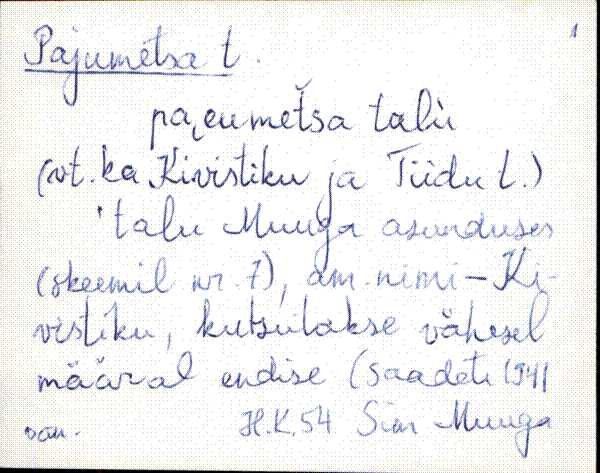 Pajumetsa t. 1
pai̯eumet̆sa talù
(vt. ka Kivistiku ja Tiidu t.)
'talu Muuga asunduses
(skeemil nr. 7), am. nimi – Ki-
vistiku, kutsutakse vähesel
määral endise (saadeti 1941
H.K. 54 Sim Muuga